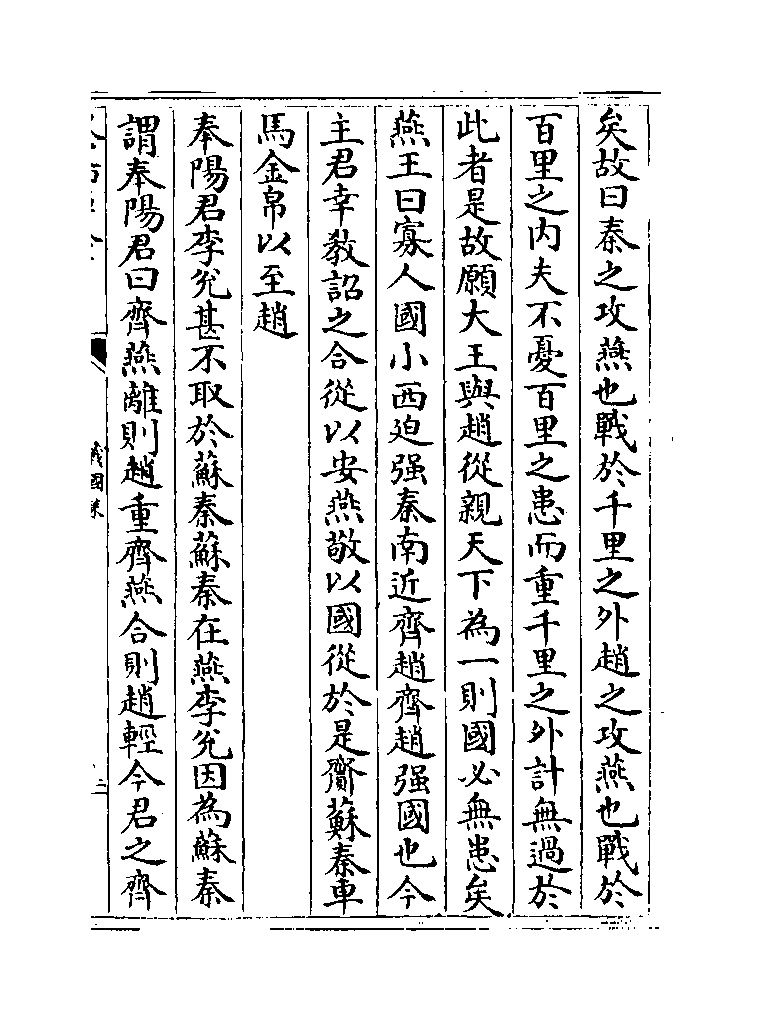 矣故曰秦之攻燕也戰於千里之外趙之攻燕也戰於
百里之内夫不憂百里之患而重千里之外計無過於
此者是故願大王與趙從親天下為一則國必無患矣
燕王曰寡人國小西迫强秦南近齊趙齊趙强國也今
主君幸教詔之合從以安燕敬以國從於是齎蘇秦車
馬金帛以至趙
奉陽君李兊甚不取於蘇秦蘇秦在燕李兊因為蘇秦
謂奉陽君曰齊燕離則趙重齊燕合則趙輕今君之齊
戰國策